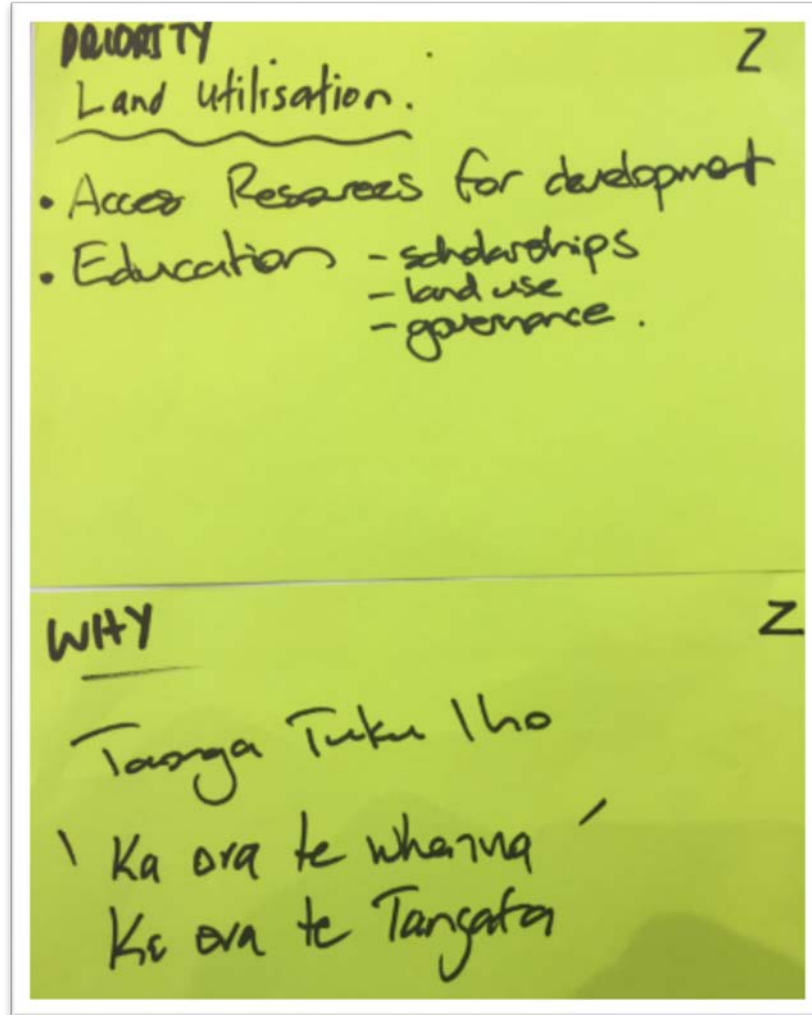 PRIORITY Z
Land Utilisation.
• Access Resources for development
• Education - scholarships
- land use
- governance.
WHY Z
Taonga Tuku Iho
' Ka ora te whenua '
Ka ora te Tangata